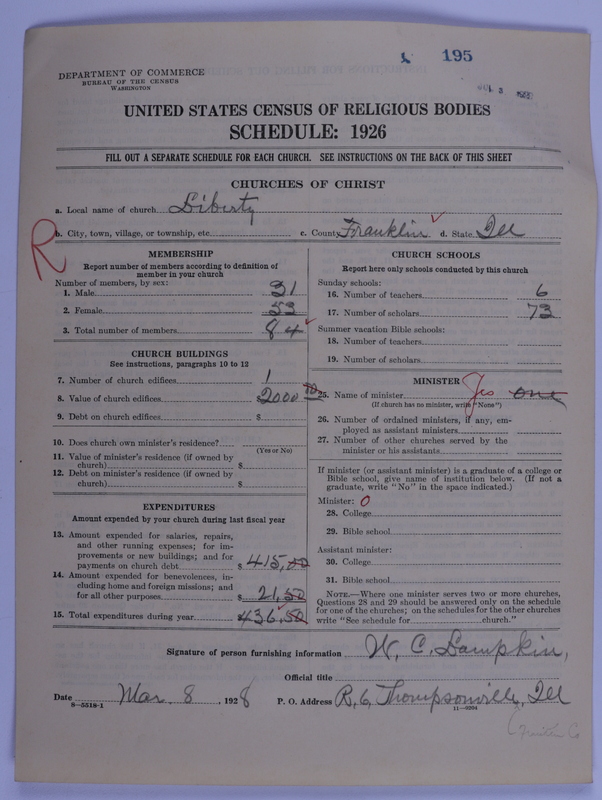 195
DEPARTMENT OF COMMERCE
BUREAU OF THE CENSUS
WASHINGTON
UNITED STATES CENSUS OF RELIGIOUS BODIES
SCHEDULE: 1926
FILL OUT A SEPARATE SCHEDULE FOR EACH CHURCH. SEE INSTRUCTIONS ON THE BACK OF THIS SHEET
CHURCHES OF CHRIST
a. Local name of church Liberty
R
b. City, town, village, or township, etc. c. County Franklin d. State Ill
MEMBERSHIP
Report number of members according to definition of
member in your church
Number of members, by sex:
1. Male 31
2. Female 53
3. Total number of members 84
CHURCH BUILDINGS
See instructions, paragraphs 10 to 12
7. Number of church edifices 1
8. Value of church edifices $2000 00
9. Debt on church edifices $
10. Does church own minister's residence?
(Yes or No)
11. Value of minister's residence (if owned by
church) $
12. Debt on minister's residence (if owned by
church) $
EXPENDITURES
Amount expended by your church during last fiscal year
13. Amount expended for salaries, repairs,
and other running expenses; for im-
provements or new buildings; and for
payments on church debt $ 415,00
14. Amount expended for benevolences, in-
cluding home and foreign missions; and
for all other purposes $ 21,50
15. Total expenditures during year $436,50
CHURCH SCHOOLS
Report here only schools conducted by this church
Sunday schools:
16. Number of teachers 6
17. Number of scholars 73
Summer vacation Bible schools:
18. Number of teachers
19. Number of scholars
MINISTER
25. Name of minister Yes one
(If church has no minister, write "None")
26. Number of ordained ministers, if any, em-
ployed as assistant ministers
27. Number of other churches served by the
minister or his assistants
If minister (or assistant minister) is a graduate of a college or
Bible school, give name of institution below. (If not a
graduate, write "No" in the space indicated.)
Minister: 0
28. College
29. Bible school
Assistant minister:
30. College
31. Bible school
NOTE.—Where one minister serves two or more churches,
Questions 28 and 29 should be answered only on the schedule
for one of the churches; on the schedules for the other churches
write "See schedule for church."
Signature of person furnishing information W, C. Lampkin,
Official title
Date Mar. 8, 1928 P. O. Address R, 6, Thompsonville, Ill
8—5518-1
11—9394
Franklin Co